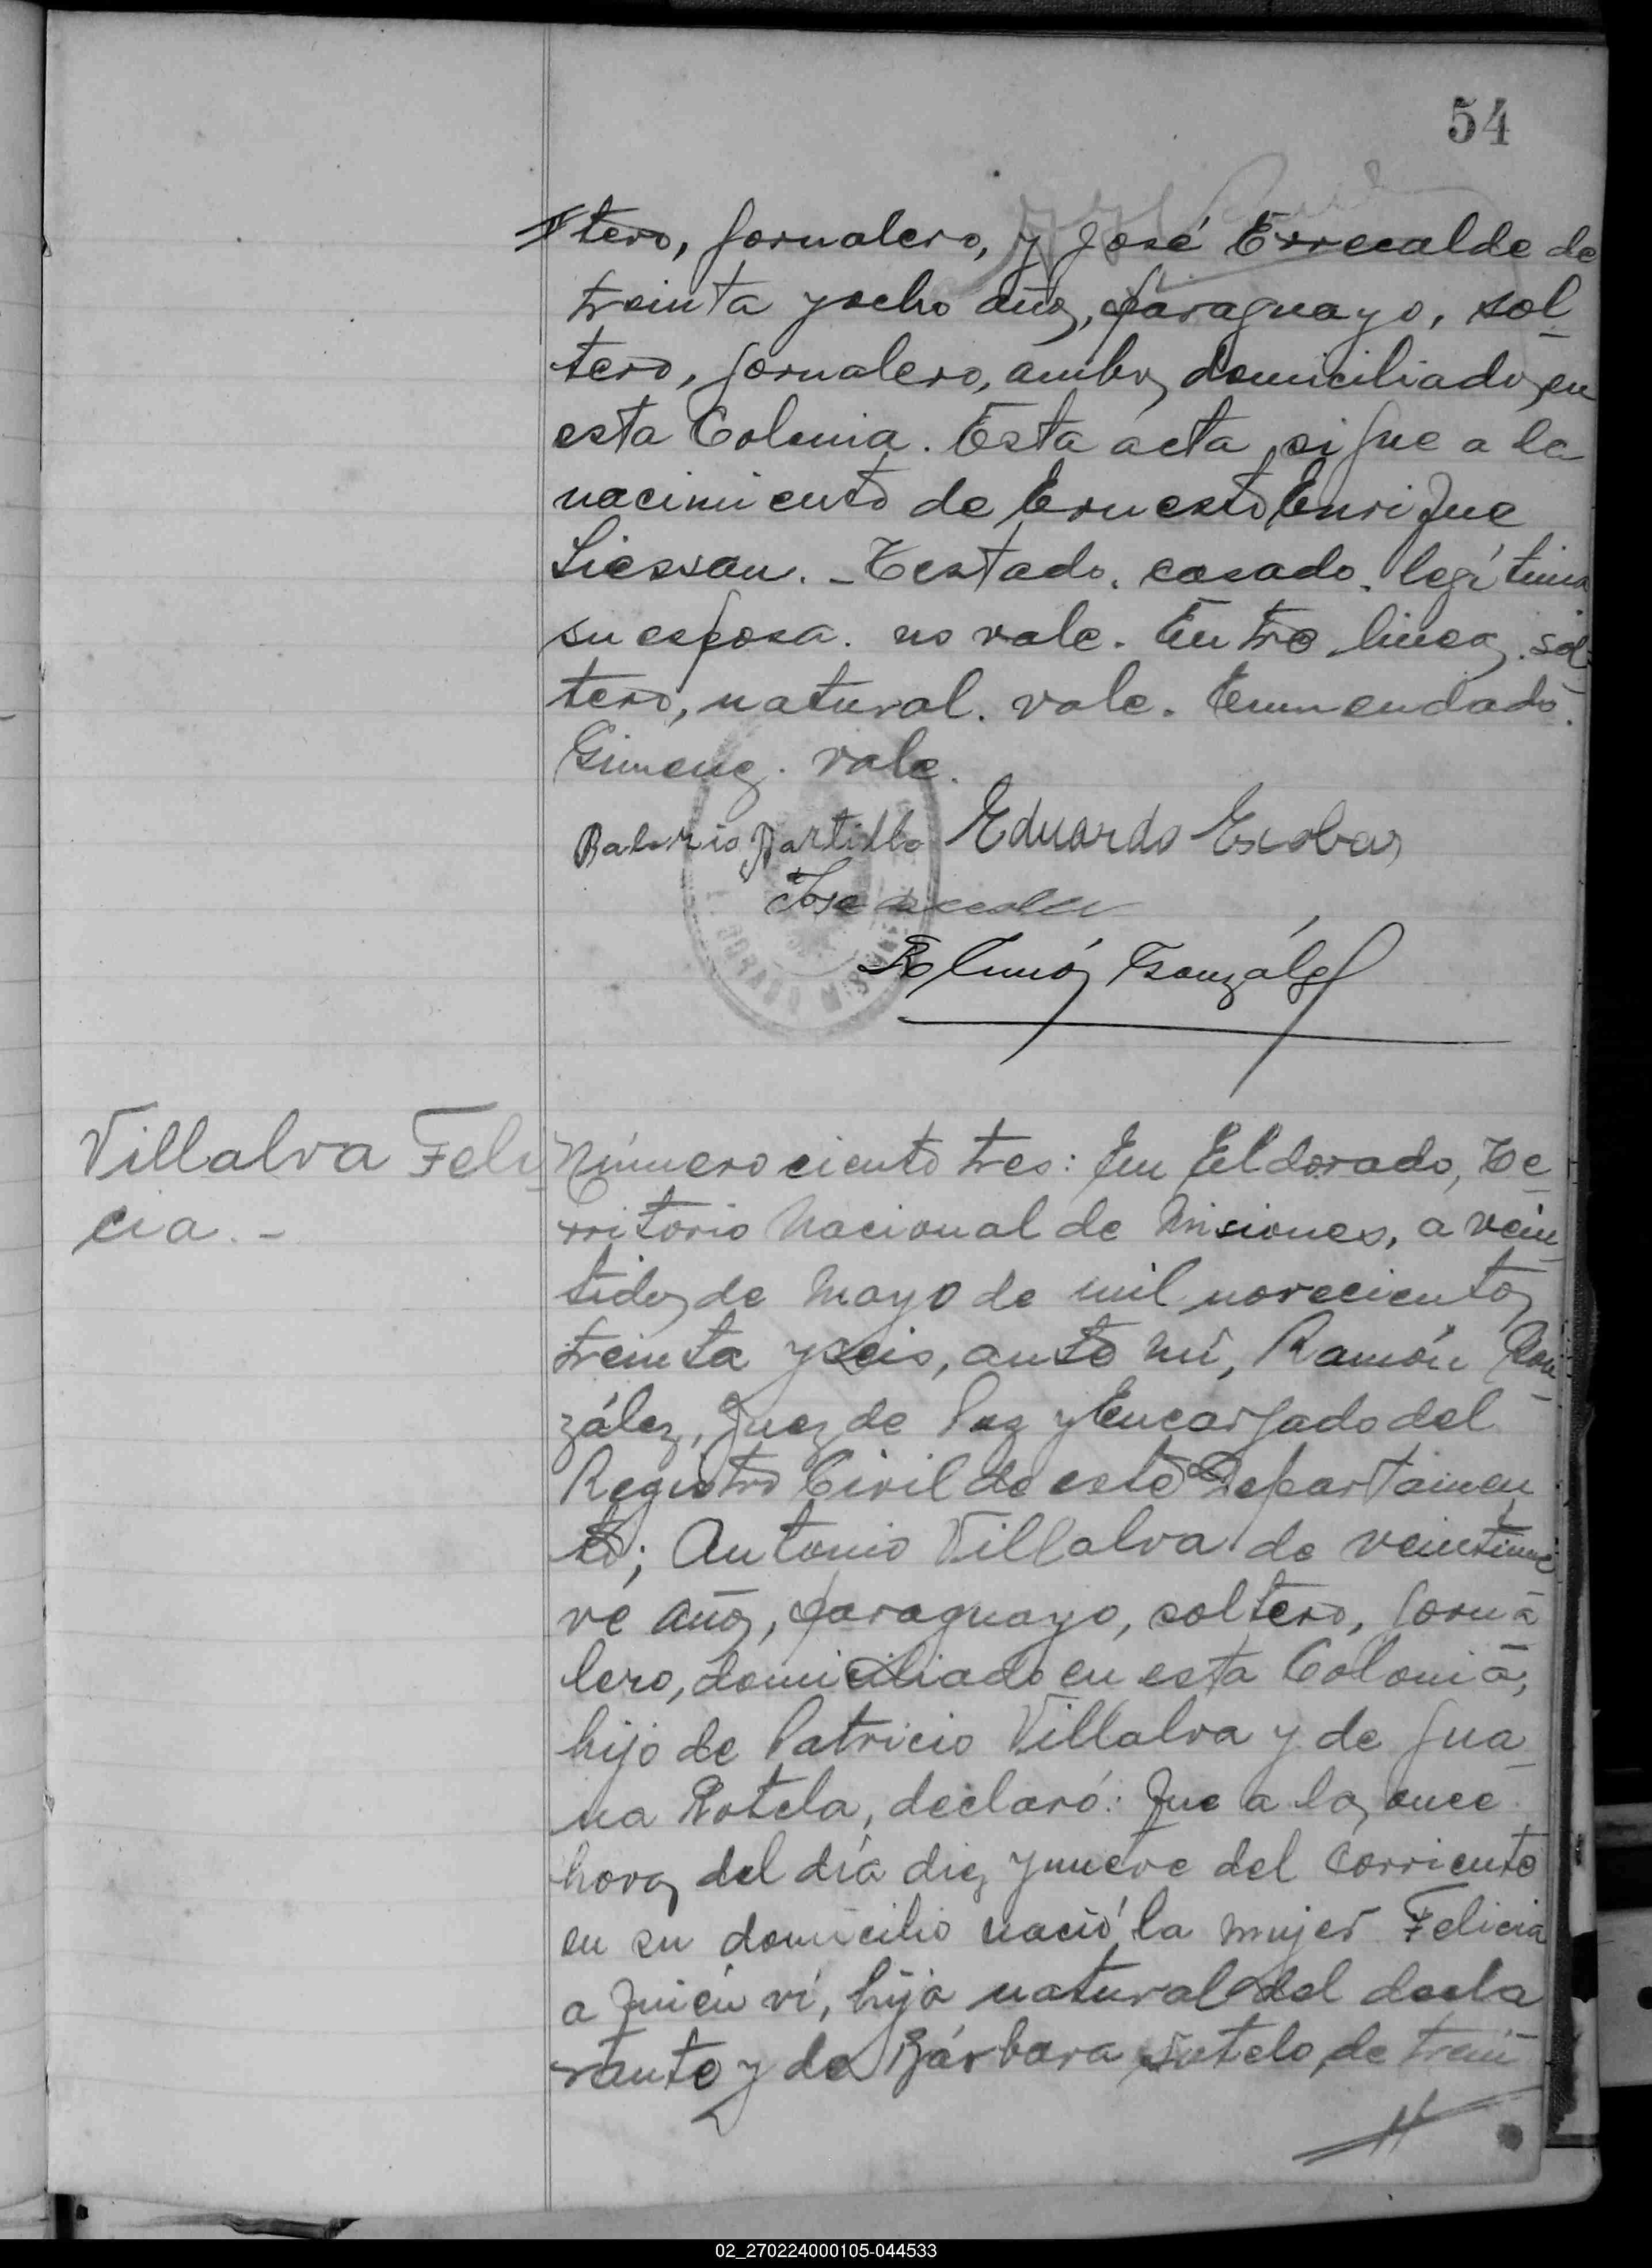 54
tero, jornalero, y José Errecalde de
treinta y ocho años, paraguayo, sol-
tero, jornalero, ambos domiciliados en
esta Colonia. Esta acta sigue a la
nacimiento de Ernesto Enrique
Liessau. - Testado. casado. legítima
su esposa. no vale. Entre lineas. sol-
tero, natural. vale. Enmendado.
Gimenez. vale.
Balerio Portillo Eduardo Escobar
Jose
Ramón González
Villalva Feli-
cia. -
Número ciento tres: En Eldorado, Te-
rritorio Nacional de Misiones, a vein-
tidos de Mayo de mil novecientos
treinta y seis, ante mí, Ramón Gon-
zález, Juez de Paz y Encargado del
Registro Civil de este Departamen-
to; Antonio Villalva de veintinue-
ve años, paraguayo, soltero, jorna-
lero, domiciliado en esta Colonia,
hijo de Patricio Villalva y de Jua-
na Rotela, declaró: Que a las once
horas del día diez y nueve del corriente
en su domicilio nació la mujer Felicia
a quien ví, hija natural del decla-
rante y de Bárbara Sotelo, de trein-
02_270224000105-044533